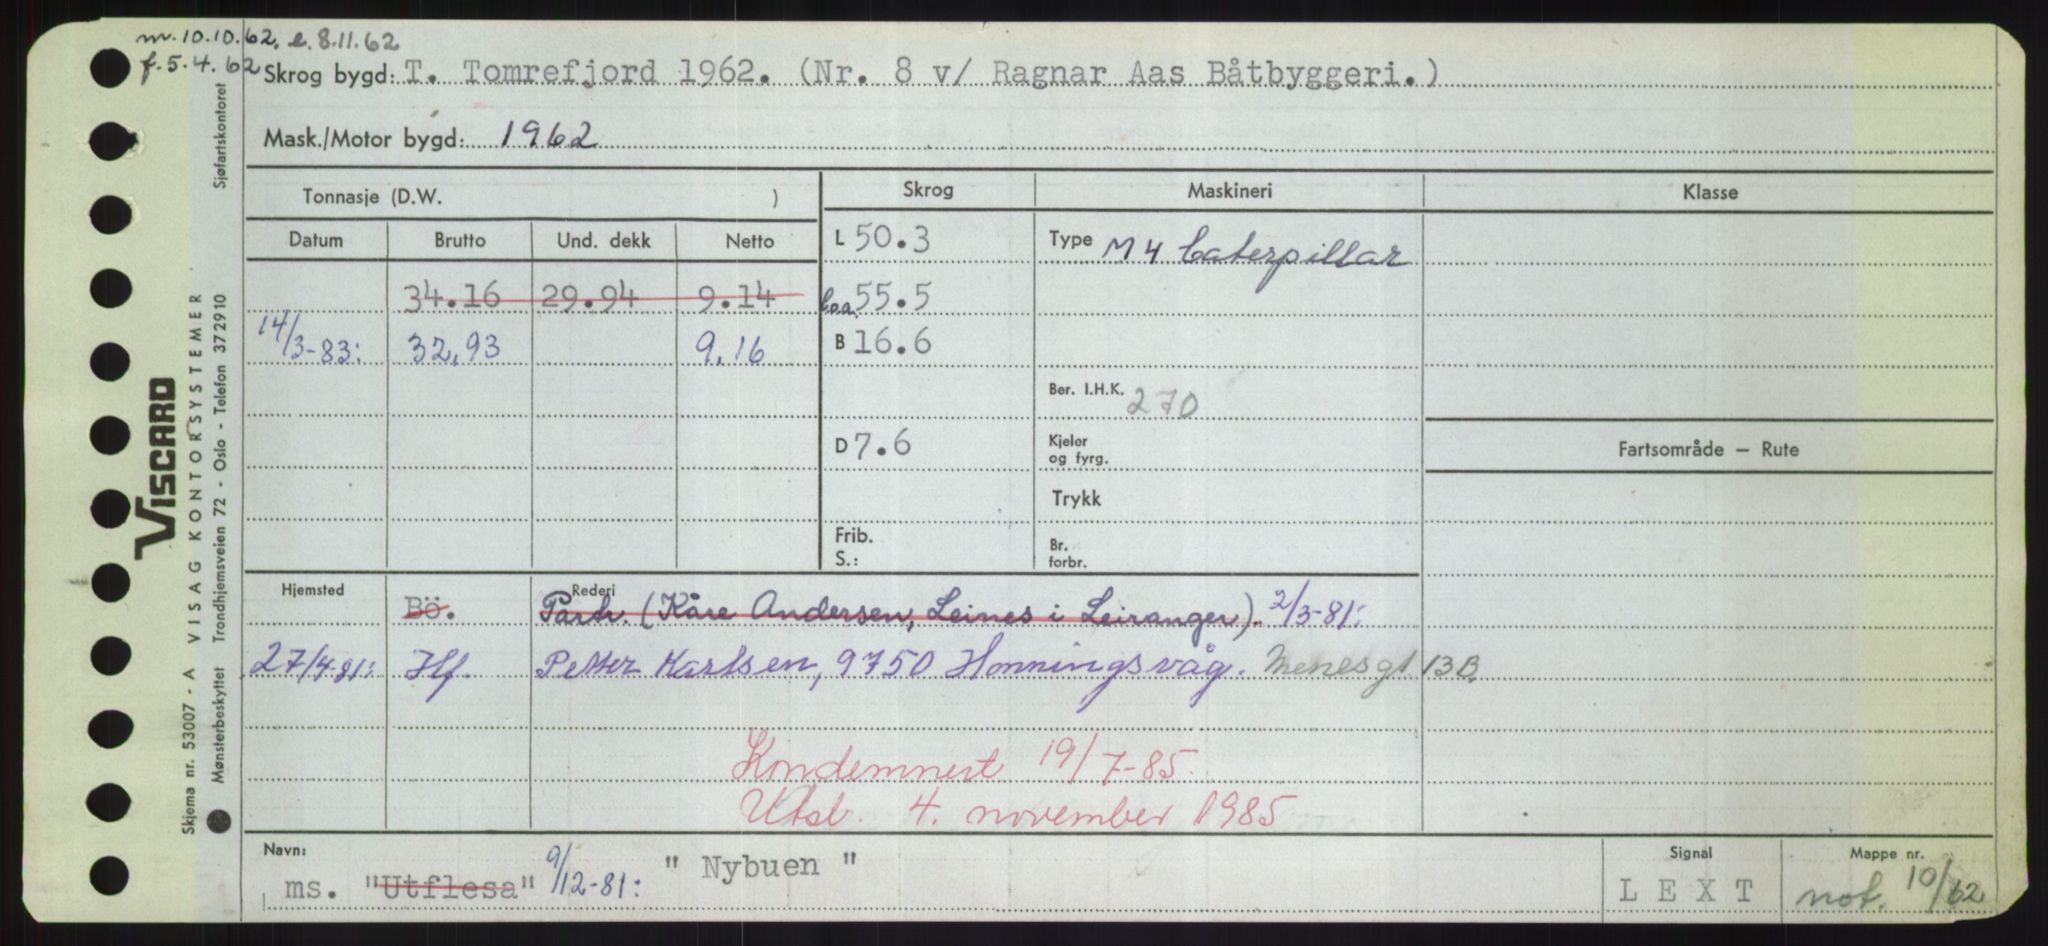 m. 10.10.62, e. 8.11.62
f. 5.4.62
Skrog bygd: T. Tomrefjord 1962. (Nr. 8 v/ Ragnar Aas Båtbyggeri.)
Mask./Motor bygd: 1962
Tonnasje (D.W. ) Skrog Maskineri Klasse
Datum Brutto Und. dekk Netto L 50.3 Type M 4 Caterpillar
34.16 29.94 9.14 Loa. 55.5
14/3-83: 32,93 9,16 B 16.6
Ber. I.H.K. 270
D 7.6 Kjeler
og fyrg.
Fartsområde – Rute
Trykk
Frib.
S.:
Br.
forbr.
Hjemsted Rederi
Bö. Partr. (Kåre Andersen, Leines i Leiranger). 2/3-81:
27/4-81: Hf. Petter Karlsen, 9750 Honningsvåg. Menesgt. 13B.
Kondemnert 19/7-85.
Utsl. 4. november 1985
Navn: Signal Mappe nr.
ms. "Utflesa" 9/12-81: " Nybuen " L E X T not. 10/62
Sjøfartskontoret
VISCARD
VISAG KONTORSYSTEMER
Trondhjemsveien 72 - Oslo - Telefon 372910
Skjema nr. 53007 - A
Mønsterbeskyttet